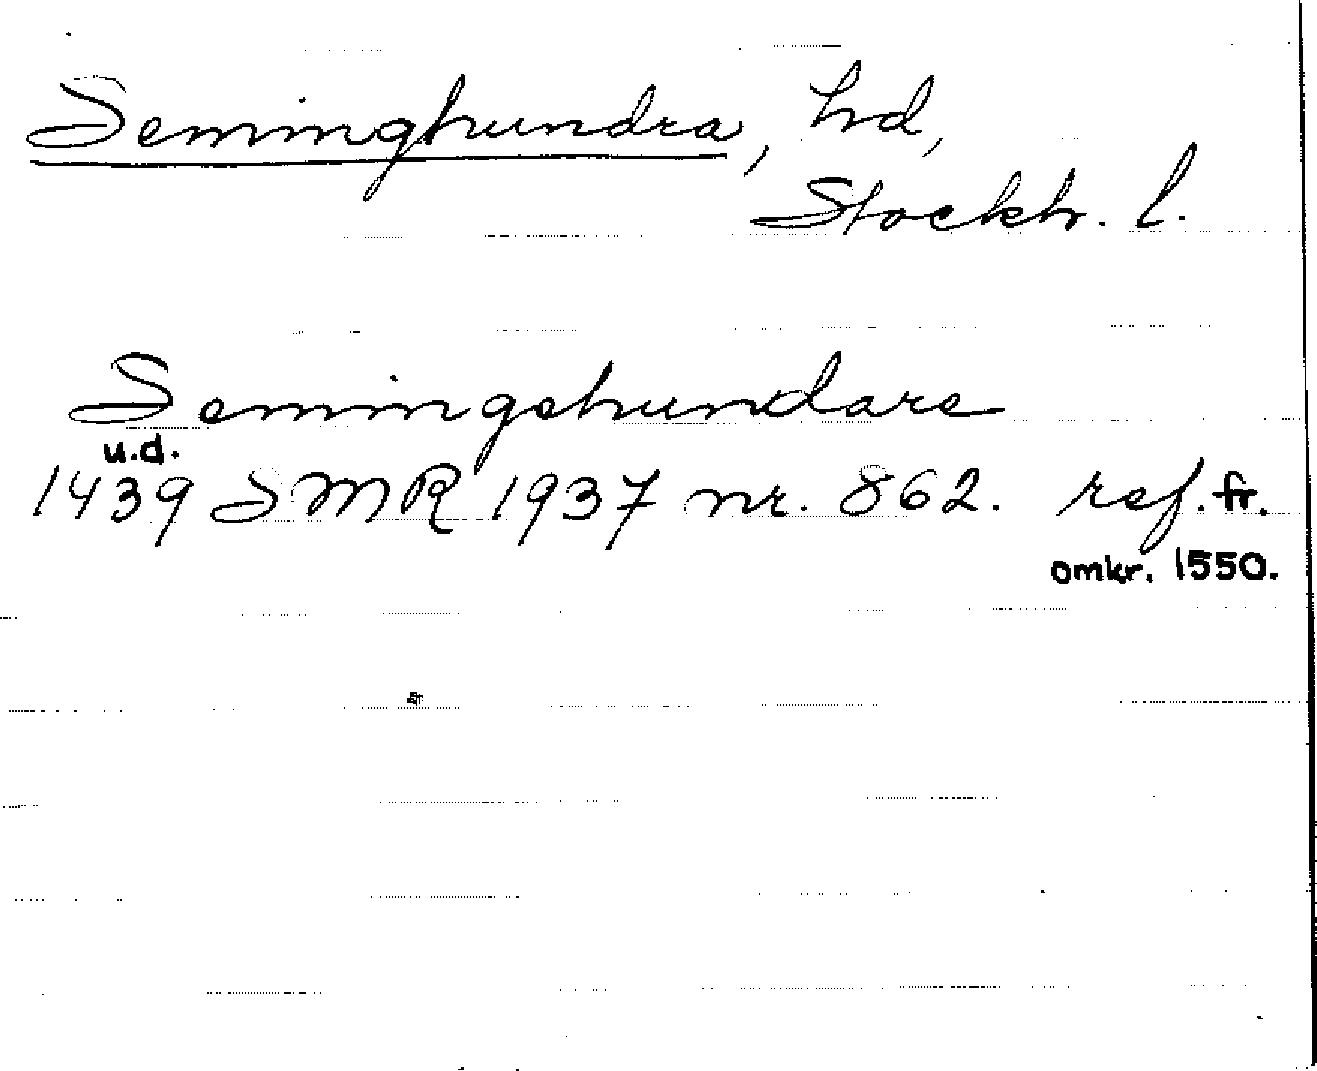 Seminghundra, hd,
Stockh. l.
Semingehundare
u.d.
1439 SMR 1937 nr. 862. ref. fr.
omkr. 1550.